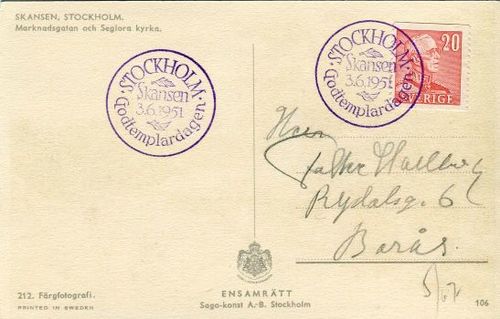 SKANSEN, STOCKHOLM.
Marknadsgatan och Seglora kyrka.
· STOCKHOLM ·
Skansen
3.6.1951
Godtemplardagen
· STOCKHOLM ·
Skansen
3.6.1951
Godtemplardagen
20
SVERIGE
Herr
Hallberg
Rydalsg. 6
Borås.
5/67
212. Färgfotografi.
PRINTED IN SWEDEN
ENSAMRÄTT
Sago-konst A.-B. Stockholm
106